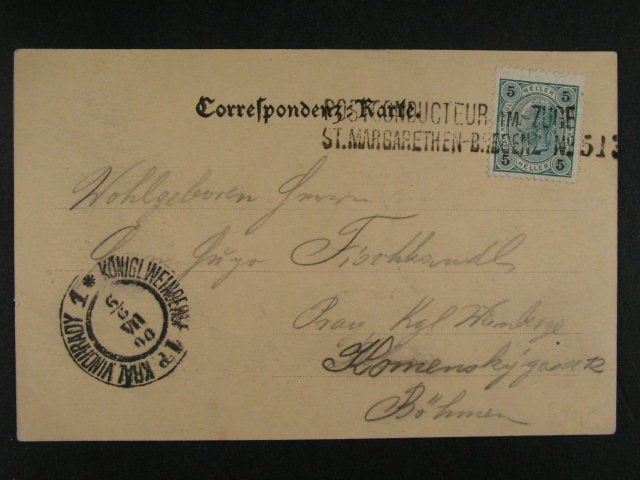 Correſpondenz-Karte.
POSTCONDUCTEUR IM ZUGE
ST. MARGARETHEN-BREGENZ No 513
5 5
HELLER
5 5
Wohlgeboren Herrn
Hugo Fischhandl
Prag Kgl Weinberge
Komenskýgasse 12
Böhmen
KÖNIGL. WEINBERGE 1
KRÁL. VINOHRADY 1